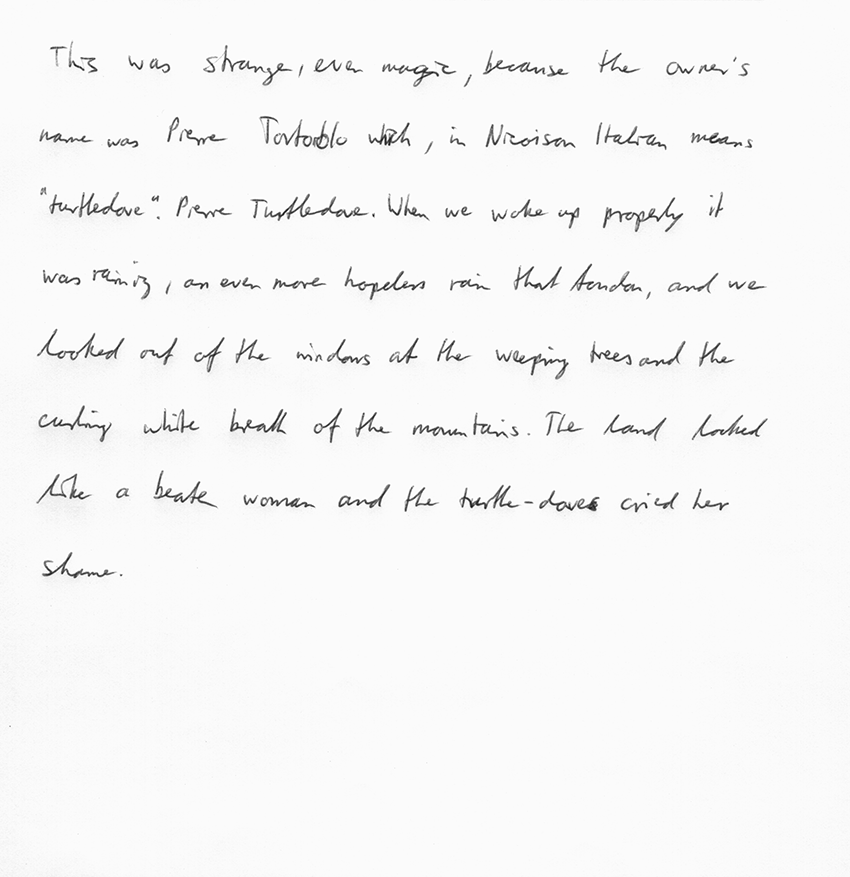 This was strange, even magic, because the owner's
name was Pierre which, in Nicoison Italian means
"turtledove". Pierre Turtledove. When we woke up properly it
was raining, an even more hopeless rain that London, and we
looked out of the windows at the weeping trees and the
curling white breath of the mountains. The land looked
like a beaten woman and the turtle-doves cried her
shame.